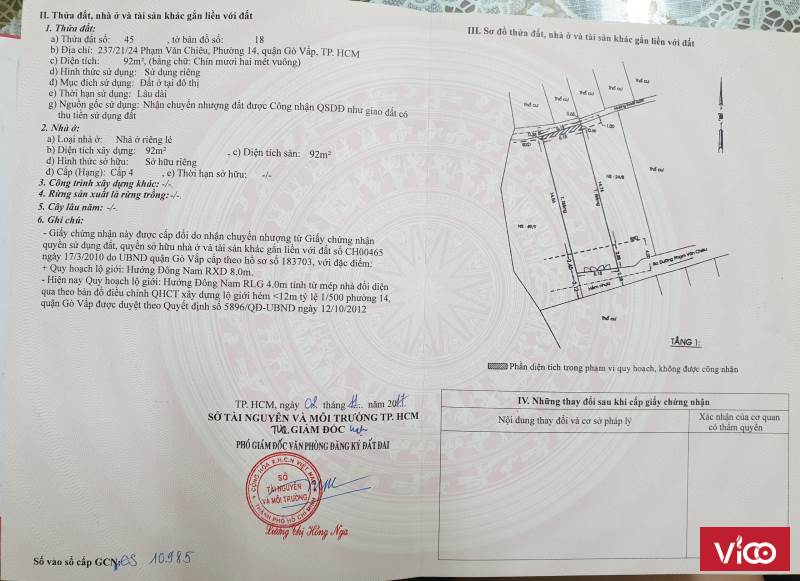 II. Thửa đất, nhà ở và tài sản khác gắn liền với đất
1. Thửa đất:
a) Thửa đất số: 45 , tờ bản đồ số: 18
b) Địa chỉ: 237/21/24 Phạm Văn Chiêu, Phường 14, quận Gò Vấp, TP. HCM
c) Diện tích: 92m², (bằng chữ: Chín mươi hai mét vuông)
d) Hình thức sử dụng: Sử dụng riêng
đ) Mục đích sử dụng: Đất ở tại đô thị
e) Thời hạn sử dụng: Lâu dài
g) Nguồn gốc sử dụng: Nhận chuyển nhượng đất được Công nhận QSDĐ như giao đất có
thu tiền sử dụng đất
2. Nhà ở:
a) Loại nhà ở: Nhà ở riêng lẻ
b) Diện tích xây dựng: 92m² , c) Diện tích sàn: 92m²
d) Hình thức sở hữu: Sở hữu riêng
đ) Cấp (Hạng): Cấp 4 , e) Thời hạn sở hữu: -/-
3. Công trình xây dựng khác: -/-.
4. Rừng sản xuất là rừng trồng: -/-.
5. Cây lâu năm: -/-.
6. Ghi chú:
- Giấy chứng nhận này được cấp đổi do nhận chuyển nhượng từ Giấy chứng nhận
quyền sử dụng đất, quyền sở hữu nhà ở và tài sản khác gắn liền với đất số CH00465
ngày 17/3/2010 do UBND quận Gò Vấp cấp theo hồ sơ số 183703, với đặc điểm:
+ Quy hoạch lộ giới: Hướng Đông Nam RXD 8.0m.
- Hiện nay Quy hoạch lộ giới: Hướng Đông Nam RLG 4.0m tính từ mép nhà đối diện
qua theo bản đồ điều chỉnh QHCT xây dựng lộ giới hẻm <12m tỷ lệ 1/500 phường 14,
quận Gò Vấp được duyệt theo Quyết định số 5896/QĐ-UBND ngày 12/10/2012
TP. HCM, ngày 02 tháng 11 năm 2017
SỞ TÀI NGUYÊN VÀ MÔI TRƯỜNG TP. HCM
TUQ. GIÁM ĐỐC
PHÓ GIÁM ĐỐC VĂN PHÒNG ĐĂNG KÝ ĐẤT ĐAI
CỘNG HÒA X.H.C.N VIỆT NAM
SỞ
TÀI NGUYÊN
VÀ MÔI TRƯỜNG
THÀNH PHỐ HỒ CHÍ MINH
Dương Thị Hồng Nga
Số vào sổ cấp GCN: CS 10985
III. Sơ đồ thửa đất, nhà ở và tài sản khác gắn liền với đất
Thổ cư
Thổ cư
Thổ cư
Thổ cư
Thổ cư
Thổ cư
NB - 24/8
NB - 49/9
T. Riêng
T. Riêng
Đi Đường Phạm Văn Chiêu
Hẻm nhựa
Thổ cư
TẦNG 1:
Phần diện tích trong phạm vi quy hoạch, không được công nhận
IV. Những thay đổi sau khi cấp giấy chứng nhận
Nội dung thay đổi và cơ sở pháp lý
Xác nhận của cơ quan
có thẩm quyền
vico